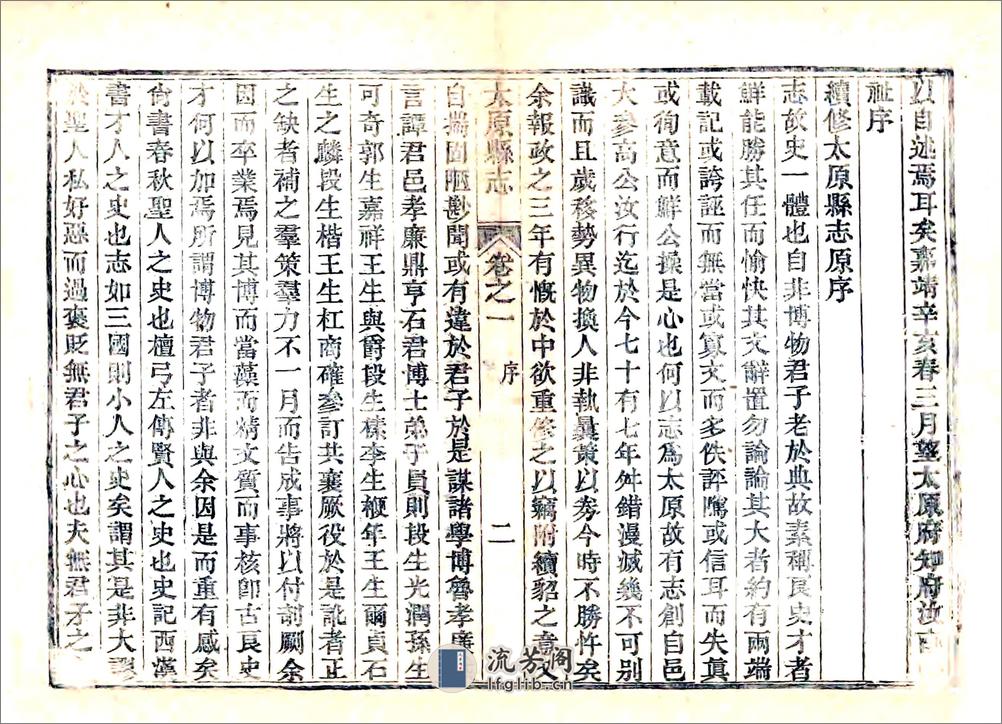 以自述焉耳矣嘉靖辛亥春三月望太原府知府汝南
祉序
續修太原縣志原序
志故史一體也自非博物君子老於典故素稱良史才者
鮮能勝其任而愉快其文辭置勿論論其大者約有兩端
載記或誇誣而無當或算文而多佚評隲或信耳而失眞
或徇意而鮮公操是心也何以志爲太原故有志創自邑
大參高公汝行迄於今七十有七年舛錯漫滅幾不可別
識而且歲移勢異物換人非執曩策以券今時不勝忤矣
余報政之三年有慨於中欲重修之以竊附續貂之意又
太原縣志 卷之一 序 二
自揣固陋尠聞或有違於君子於是謀諸學博魯孝廉
言譚君邑孝廉鼎亨石君博士弟子員則段生光潤孫生
可奇郭生嘉祥王生與爵段生榛李生櫦年王生爾貞石
生之麟段生楷王生杠商確參訂共襄厥役於是訛者正
之缺者補之羣策羣力不一月而告成事將以付剞劂余
因而卒業焉見其博而當藻而精文質而事核卽古良史
才何以加焉所謂博物君子者非與余因是而重有感矣
尙書春秋聖人之史也檀弓左傳賢人之史也史記西漢
書才人之史也志如三國則小人之史矣謂其是非大謬
於聖人私好惡而過褒貶無君子之心也夫無君子之
流芳閣
lfglib.cn